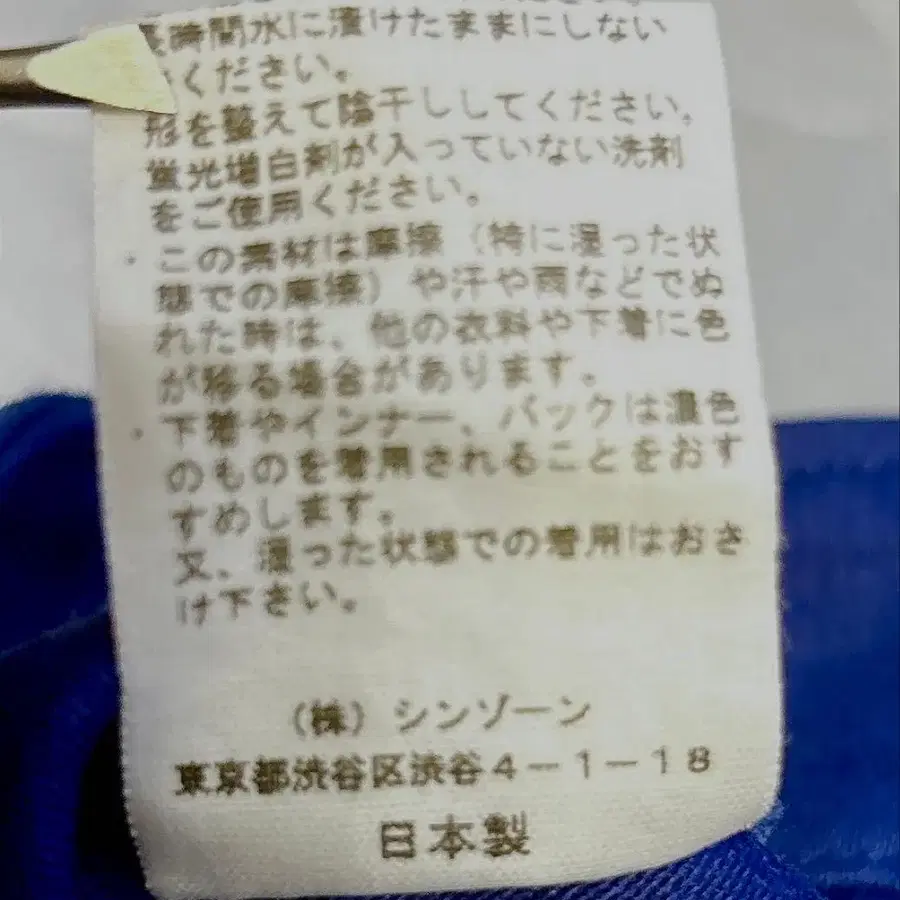 長時間水に漬けたままにしない
ください。
形を整えて陰干ししてください。
蛍光増白剤が入っていない洗剤
をご使用ください。
・この素材は摩擦（特に湿った状
態での摩擦）や汗や雨などでぬ
れた時は、他の衣料や下着に色
が移る場合があります。
・下着やインナー、バックは濃色
のものを着用されることをおす
すめします。
又、湿った状態での着用はおさ
け下さい。
（株）シンゾーン
東京都渋谷区渋谷4－1－18
日本製